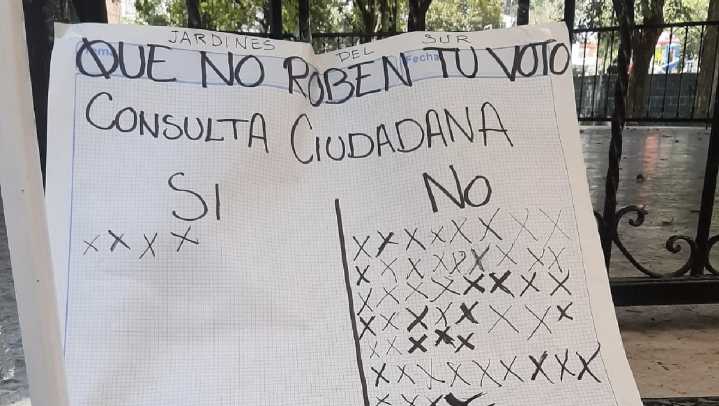 JARDINES DEL SUR
Fecha
QUE NO ROBEN TU VOTO
CONSULTA CIUDADANA
SI NO